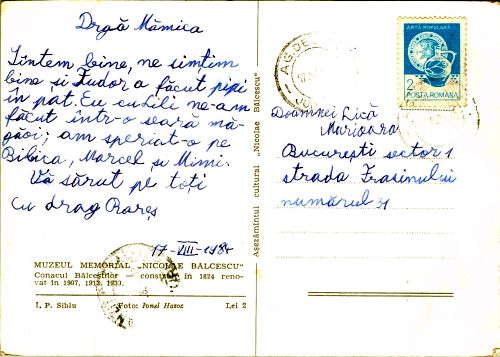 Dragă Mămica
Sîntem bine, ne simțim
bine și Tudor a făcut pipi
în pat. Eu cu Lili ne-am
făcut într-o seară mă-
găoi; am speriat-o pe
Bibica, Marcel și Mimi.
Vă sărut pe toți
Cu drag Rareș
17-VIII-1984
MUZEUL MEMORIAL „NICOLAE BĂLCESCU"
Conacul Bălceștilor — construit în 1824 reno-
vat în 1907, 1913, 1933.
I. P. Sibiu Foto: Ionel Hasoc Lei 2
Așezămîntul cultural „Nicolae Bălcescu"
AG DE
ARTA POPULARĂ
2
POSTA ROMANA
Doamnei Lică
Marioara
București sector 1
strada Frasinului
numărul 31